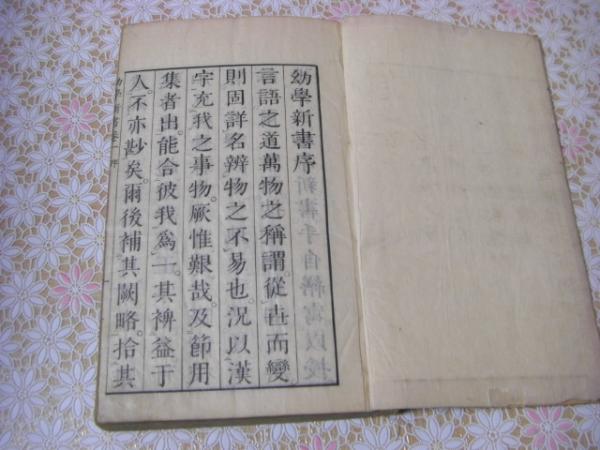 幼學新書序
言語之道萬物之稱謂。從世而變
則固詳名辨物之不易也。況以漢
字充我之事物。厥惟艱哉。及節用
集者出。能合彼我爲一。其裨益于
人。不亦尠矣。爾後補其闕略。拾其